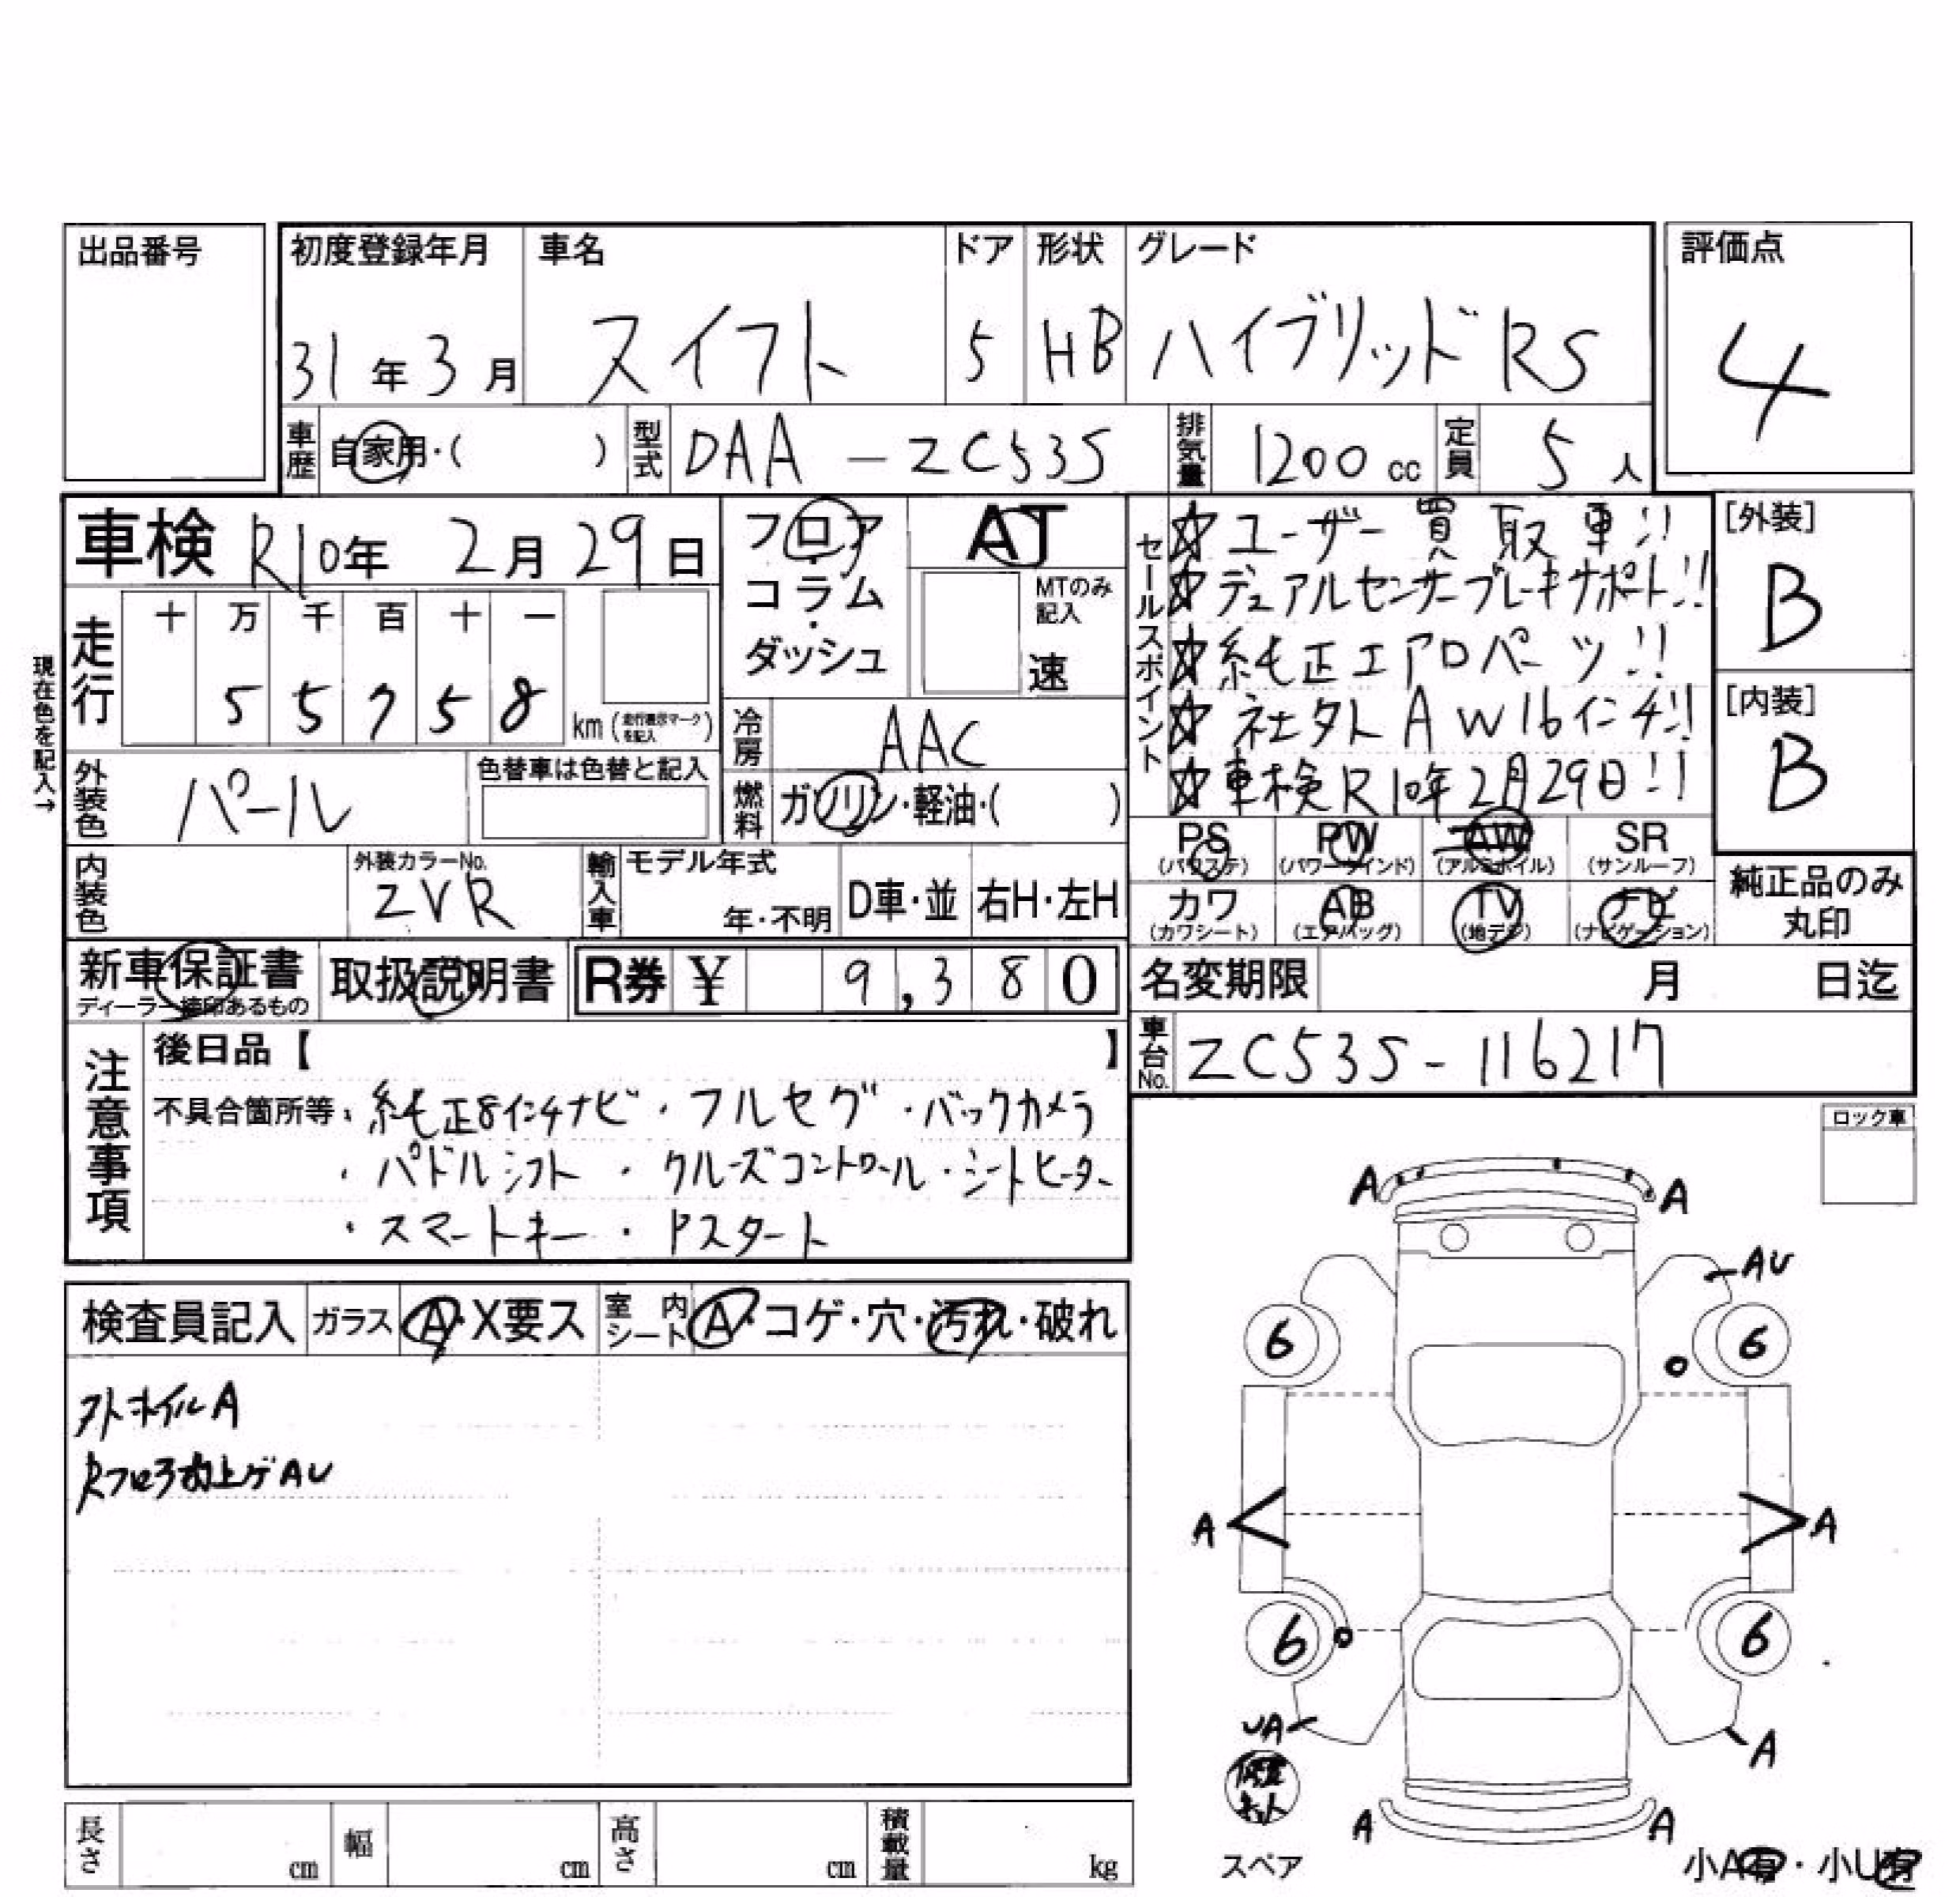 出品番号
初度登録年月 車名 ドア 形状 グレード 評価点
31年3月 スイフト 5 HB ハイブリッドRS 4
車歴 自家用・( ) 型式 DAA-ZC53S 排気量 1200cc 定員 5人
車検 R10年 2月29日 フロア AT
コラム
・
ダッシュ
MTのみ記入
速
セールスポイント
☆ユーザー買取車!!
☆デュアルセンサーブレーキサポート!!
☆純正エアロパーツ!!
☆社外AW16インチ!!
☆車検R10年2月29日!!
[外装]
B
[内装]
B
現在色を記入→
走行 十 万 千 百 十 一
5 5 7 5 8 km(走行表示マークを記入)
冷房 AAC
外装色 パール 色替車は色替と記入 燃料 ガソリン・軽油・( )
PS PW AW SR
(パワステ) (パワーウインド) (アルミホイル) (サンルーフ)
カワ AB TV ナビ
(カワシート) (エアバッグ) (地デジ) (ナビゲーション)
純正品のみ
丸印
内装色 外装カラーNo. ZVR 輸入車 モデル年式 年・不明 D車・並 右H・左H
新車保証書 取扱説明書 R券 ¥ 9,380
ディーラー捺印あるもの
名変期限 月 日迄
車台No. ZC53S-116217
注意事項 後日品【 】
不具合箇所等・純正8インチナビ・フルセグ・バックカメラ
・パドルシフト・クルーズコントロール・シートヒーター
・スマートキー・Pスタート
ロック車
検査員記入 ガラス A・X要ス 室内シート A・コゲ・穴・汚れ・破れ
外ホイルA
A A
AU
6 6
A A
6 6
UA
A
A A
スペア
小A有・小U有
長さ cm 幅 cm 高さ cm 積載量 kg